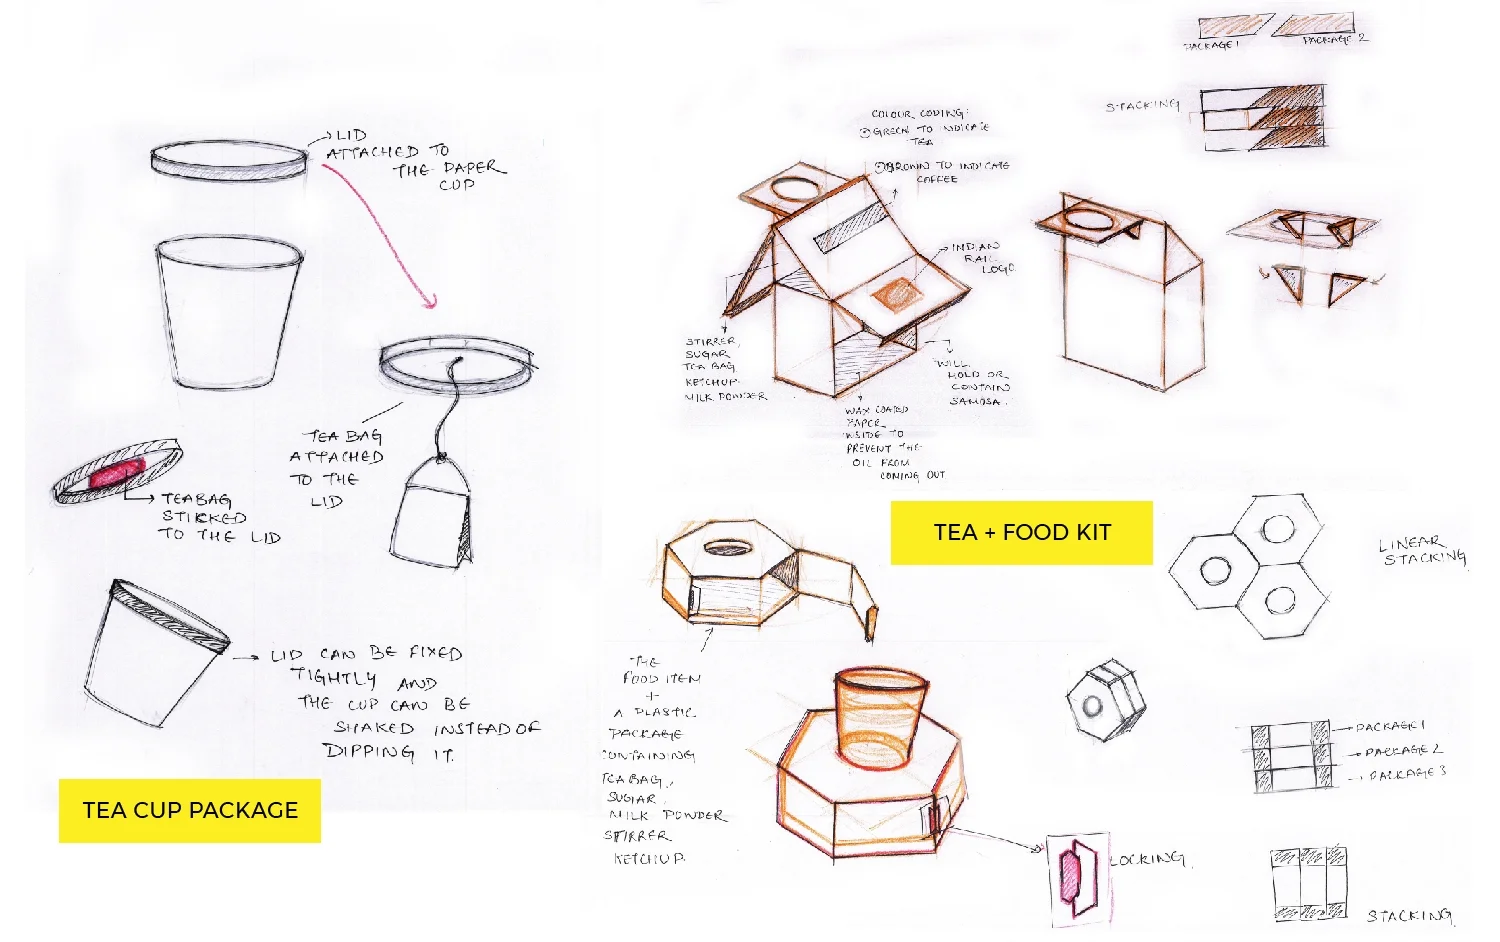 LID
ATTACHED TO
THE PAPER
CUP
TEA BAG
ATTACHED
TO THE
LID
TEABAG
STIKKED
TO THE LID
LID CAN BE FIXED
TIGHTLY AND
THE CUP CAN BE
SHAKED INSTEAD OF
DIPPING IT.
TEA CUP PACKAGE
PACKAGE 1
PACKAGE 2
STACKING
COLOUR CODING:
GREEN TO INDICATE
TEA
BROWN TO INDICATE
COFFEE
INDIAN
RAIL
LOGO
STIRRER,
SUGAR
TEA BAG
KETCHUP
MILK POWDER
WILL
HOLD OR
CONTAIN
SAMOSA.
WAX COATED
PAPER
INSIDE TO
PREVENT THE
OIL FROM
COMING OUT
TEA + FOOD KIT
LINEAR
STACKING
THE
FOOD ITEM
+
A PLASTIC
PACKAGE
CONTAINING
TEA BAG,
SUGAR,
MILK POWDER
STIRRER
KETCHUP.
LOCKING.
PACKAGE 1
PACKAGE 2
PACKAGE 3
STACKING.